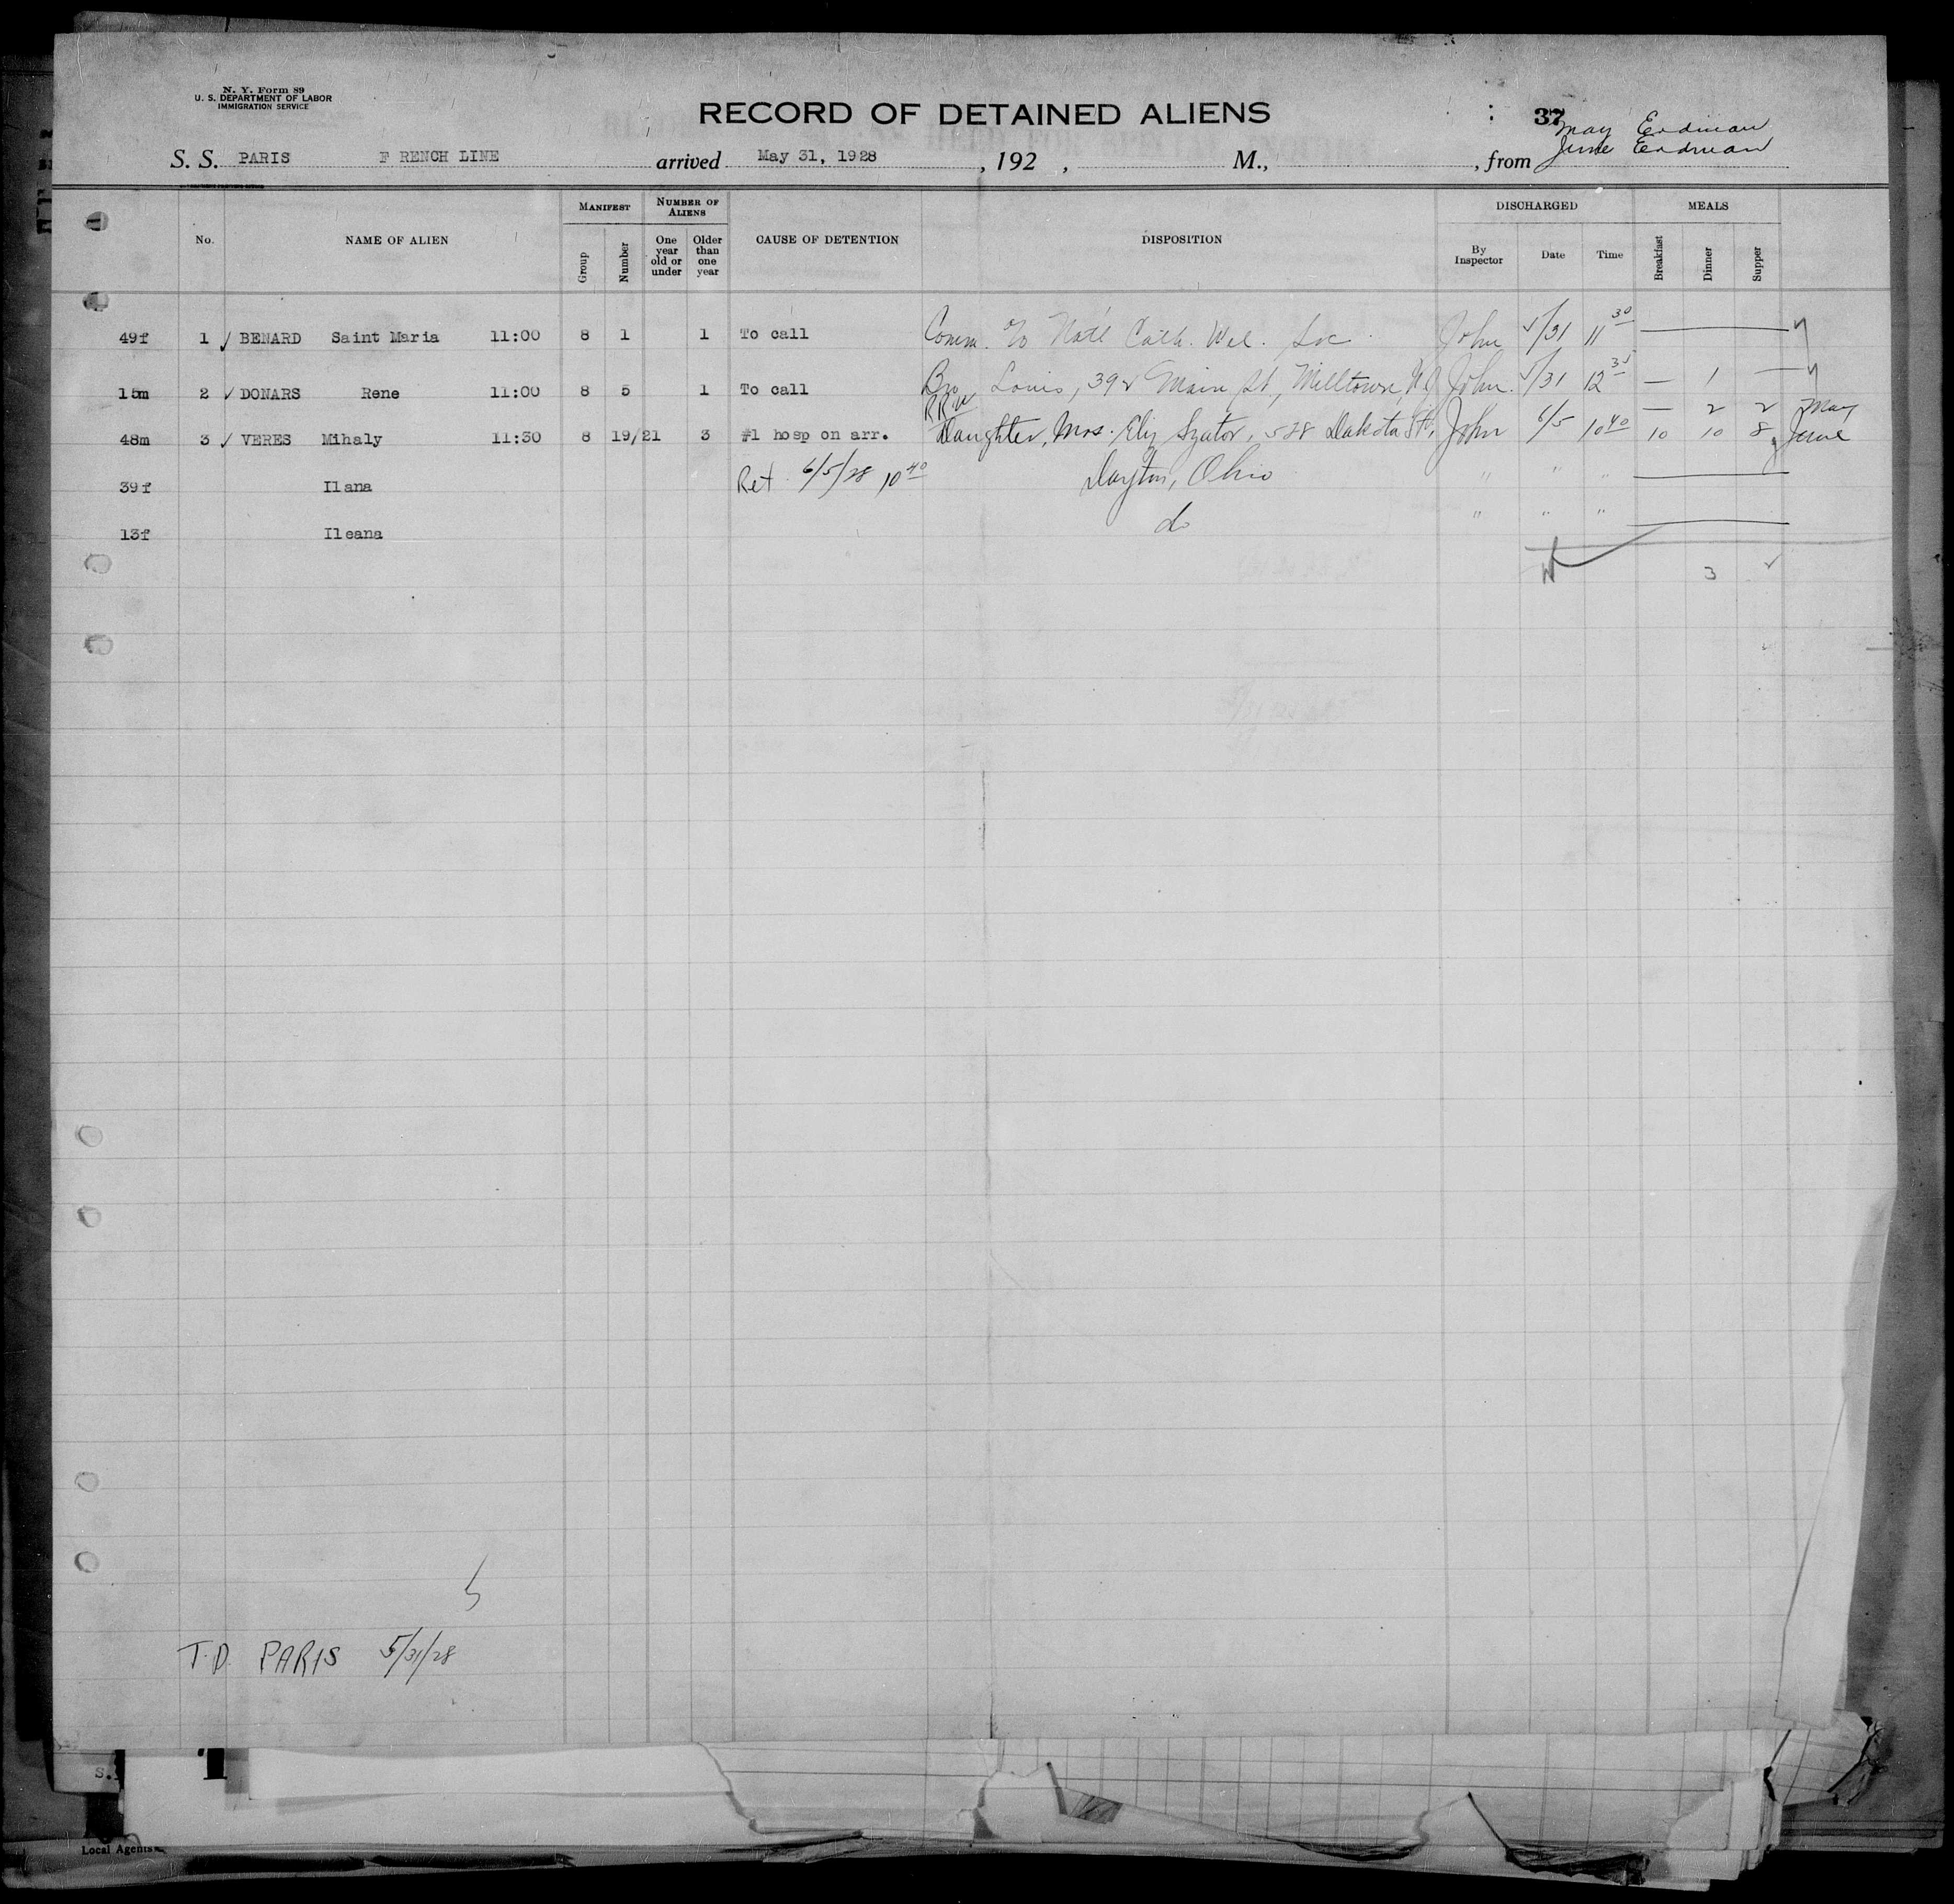 N. Y. Form 89
U. S. DEPARTMENT OF LABOR
IMMIGRATION SERVICE
RECORD OF DETAINED ALIENS
37
May Erdman
June Erdman
S. S. PARIS F RENCH LINE arrived May 31, 1928, 192 , M., , from
No. NAME OF ALIEN MANIFEST Group Number NUMBER OF ALIENS One year old or under Older than one year CAUSE OF DETENTION DISPOSITION DISCHARGED By Inspector Date Time MEALS Breakfast Dinner Supper
49f 1 ✓ BENARD Saint Maria 11:00 8 1 1 To call Comm. to Natl Cath. Wel. Soc. John 5/31 11 30
15m 2 ✓ DONARS Rene 11:00 8 5 1 To call Bro Louis, 392 Main St, Milltown, NJ John 5/31 12 35 — 1 —
RRW — 2 2 May
48m 3 ✓ VERES Mihaly 11:30 8 19/21 3 #1 hosp on arr. Daughter, Mrs. Eliz Szator, 528 Dakota St, John 6/5 10 40 10 10 8 June
39f Ilana Ret 6/5/28 10 40 Dayton, Ohio " " "
13f Ileana do " " "
3
T.D. PARIS 5/31/28
S.
Local Agents